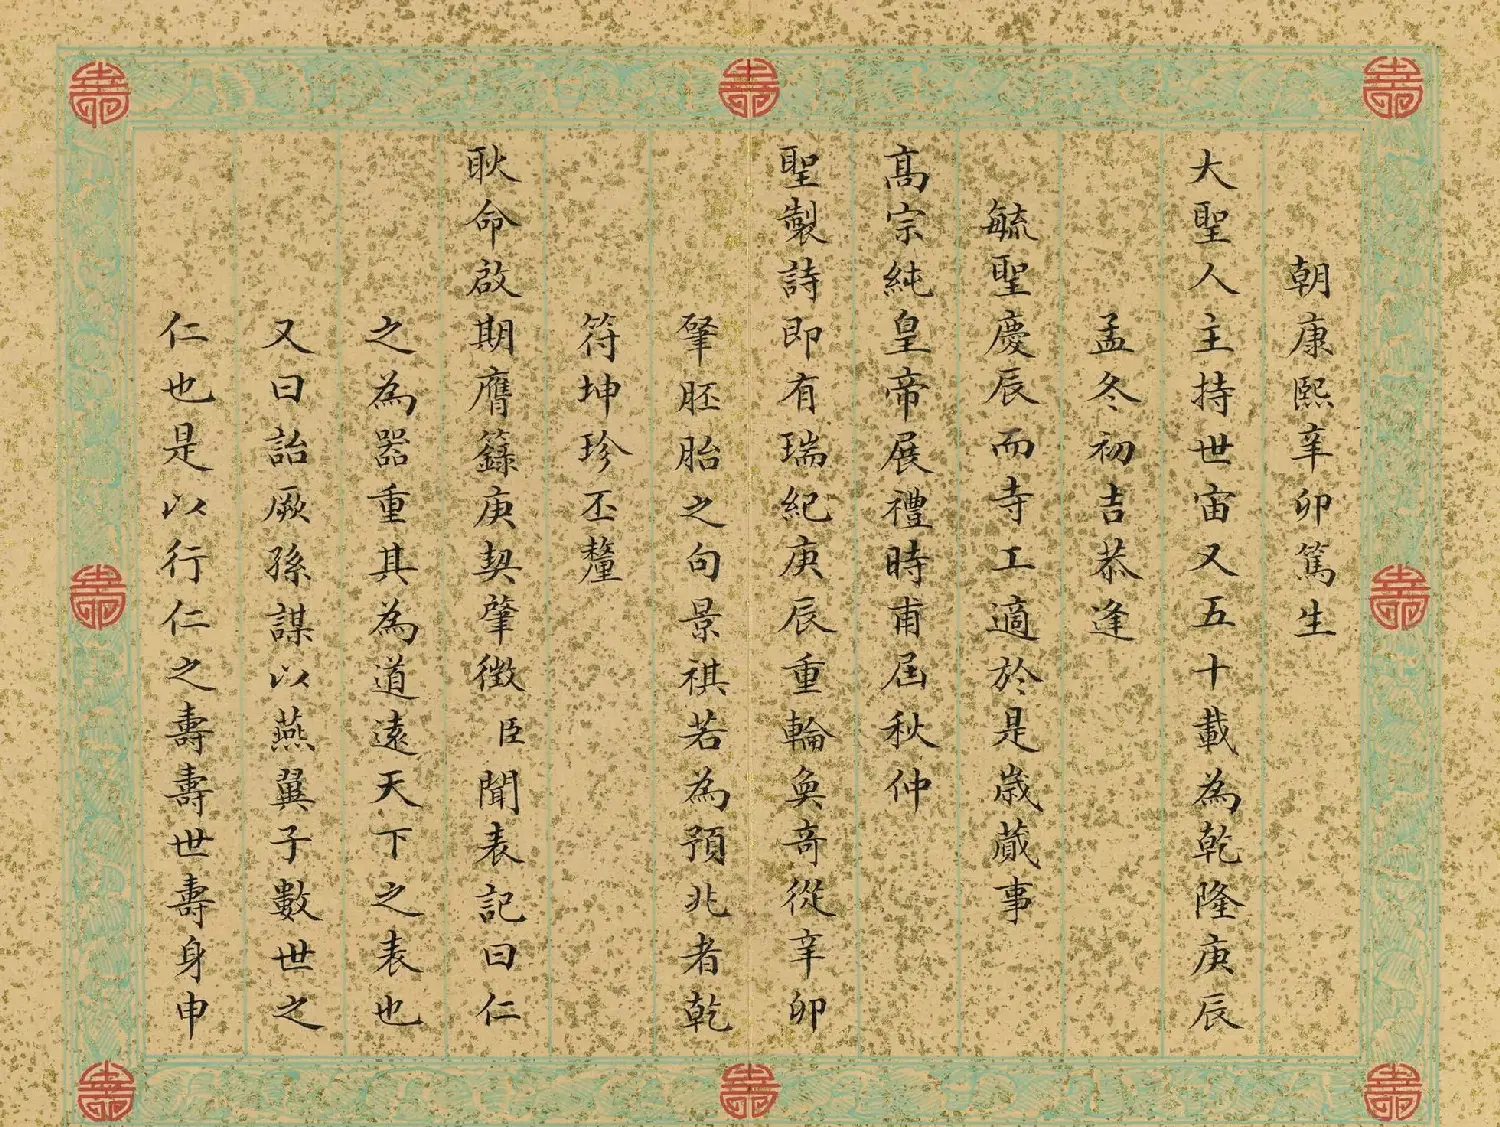 朝康熙辛卯篤生
大聖人主持世宙又五十載為乾隆庚辰
孟冬初吉恭逢
毓聖慶辰而寺工適於是歲蕆事
髙宗純皇帝展禮時甫屆秋仲
聖製詩即有瑞紀庚辰重輪奐奇從辛卯
肈胚胎之句景祺若為預兆者乾
符坤珍丕釐
耿命啟期膺籙庚契肈徵臣聞表記曰仁
之為器重其為道遠天下之表也
又曰詒厥孫謀以燕翼子數世之
仁也是以行仁之壽壽世壽身申